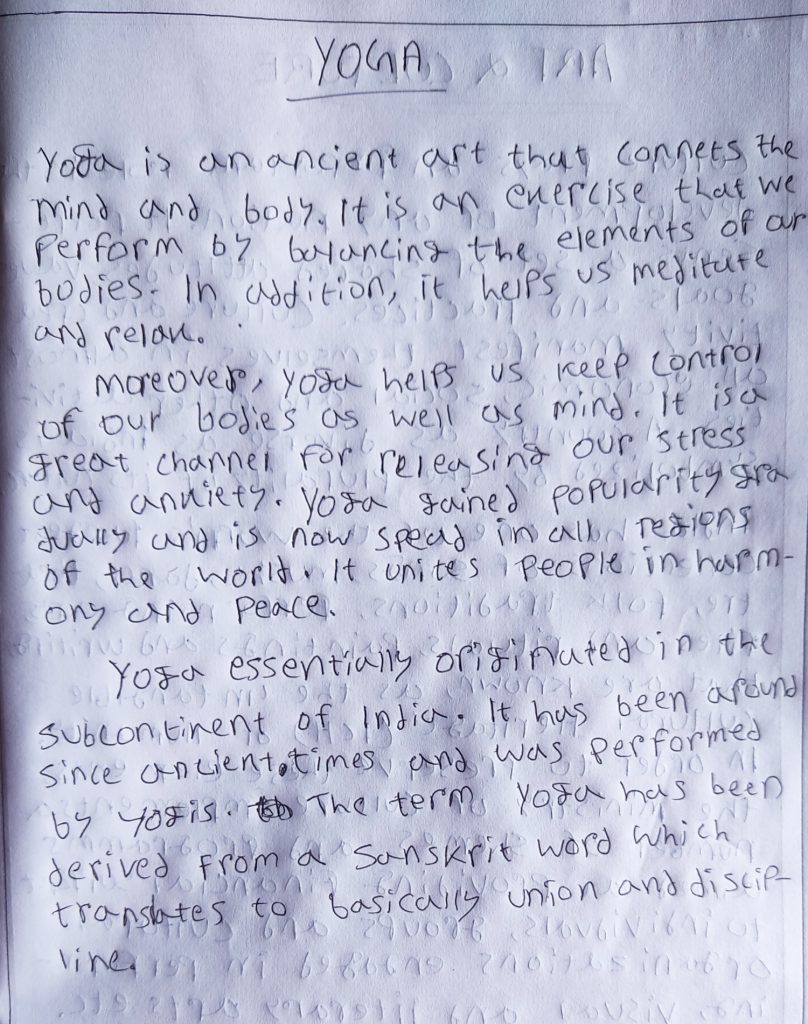 YOGA
Yoga is an ancient art that connets the
mind and body. It is an exercise that we
Perform by balancing the elements of our
bodies. In addition, it helps us meditate
and relax.
Moreover, yoga helps us keep control
of our bodies as well as mind. It is a
great channel for releasing our stress
and anxiety. Yoga gained popularity gra
dually and is now spead in all regions
of the world. It unites people in harm-
ony and peace.
Yoga essentially originated in the
subcontinent of India. It has been around
since ancient times and was performed
by yogis. The term yoga has been
derived from a Sanskrit word which
translates to basically union and discip-
line.